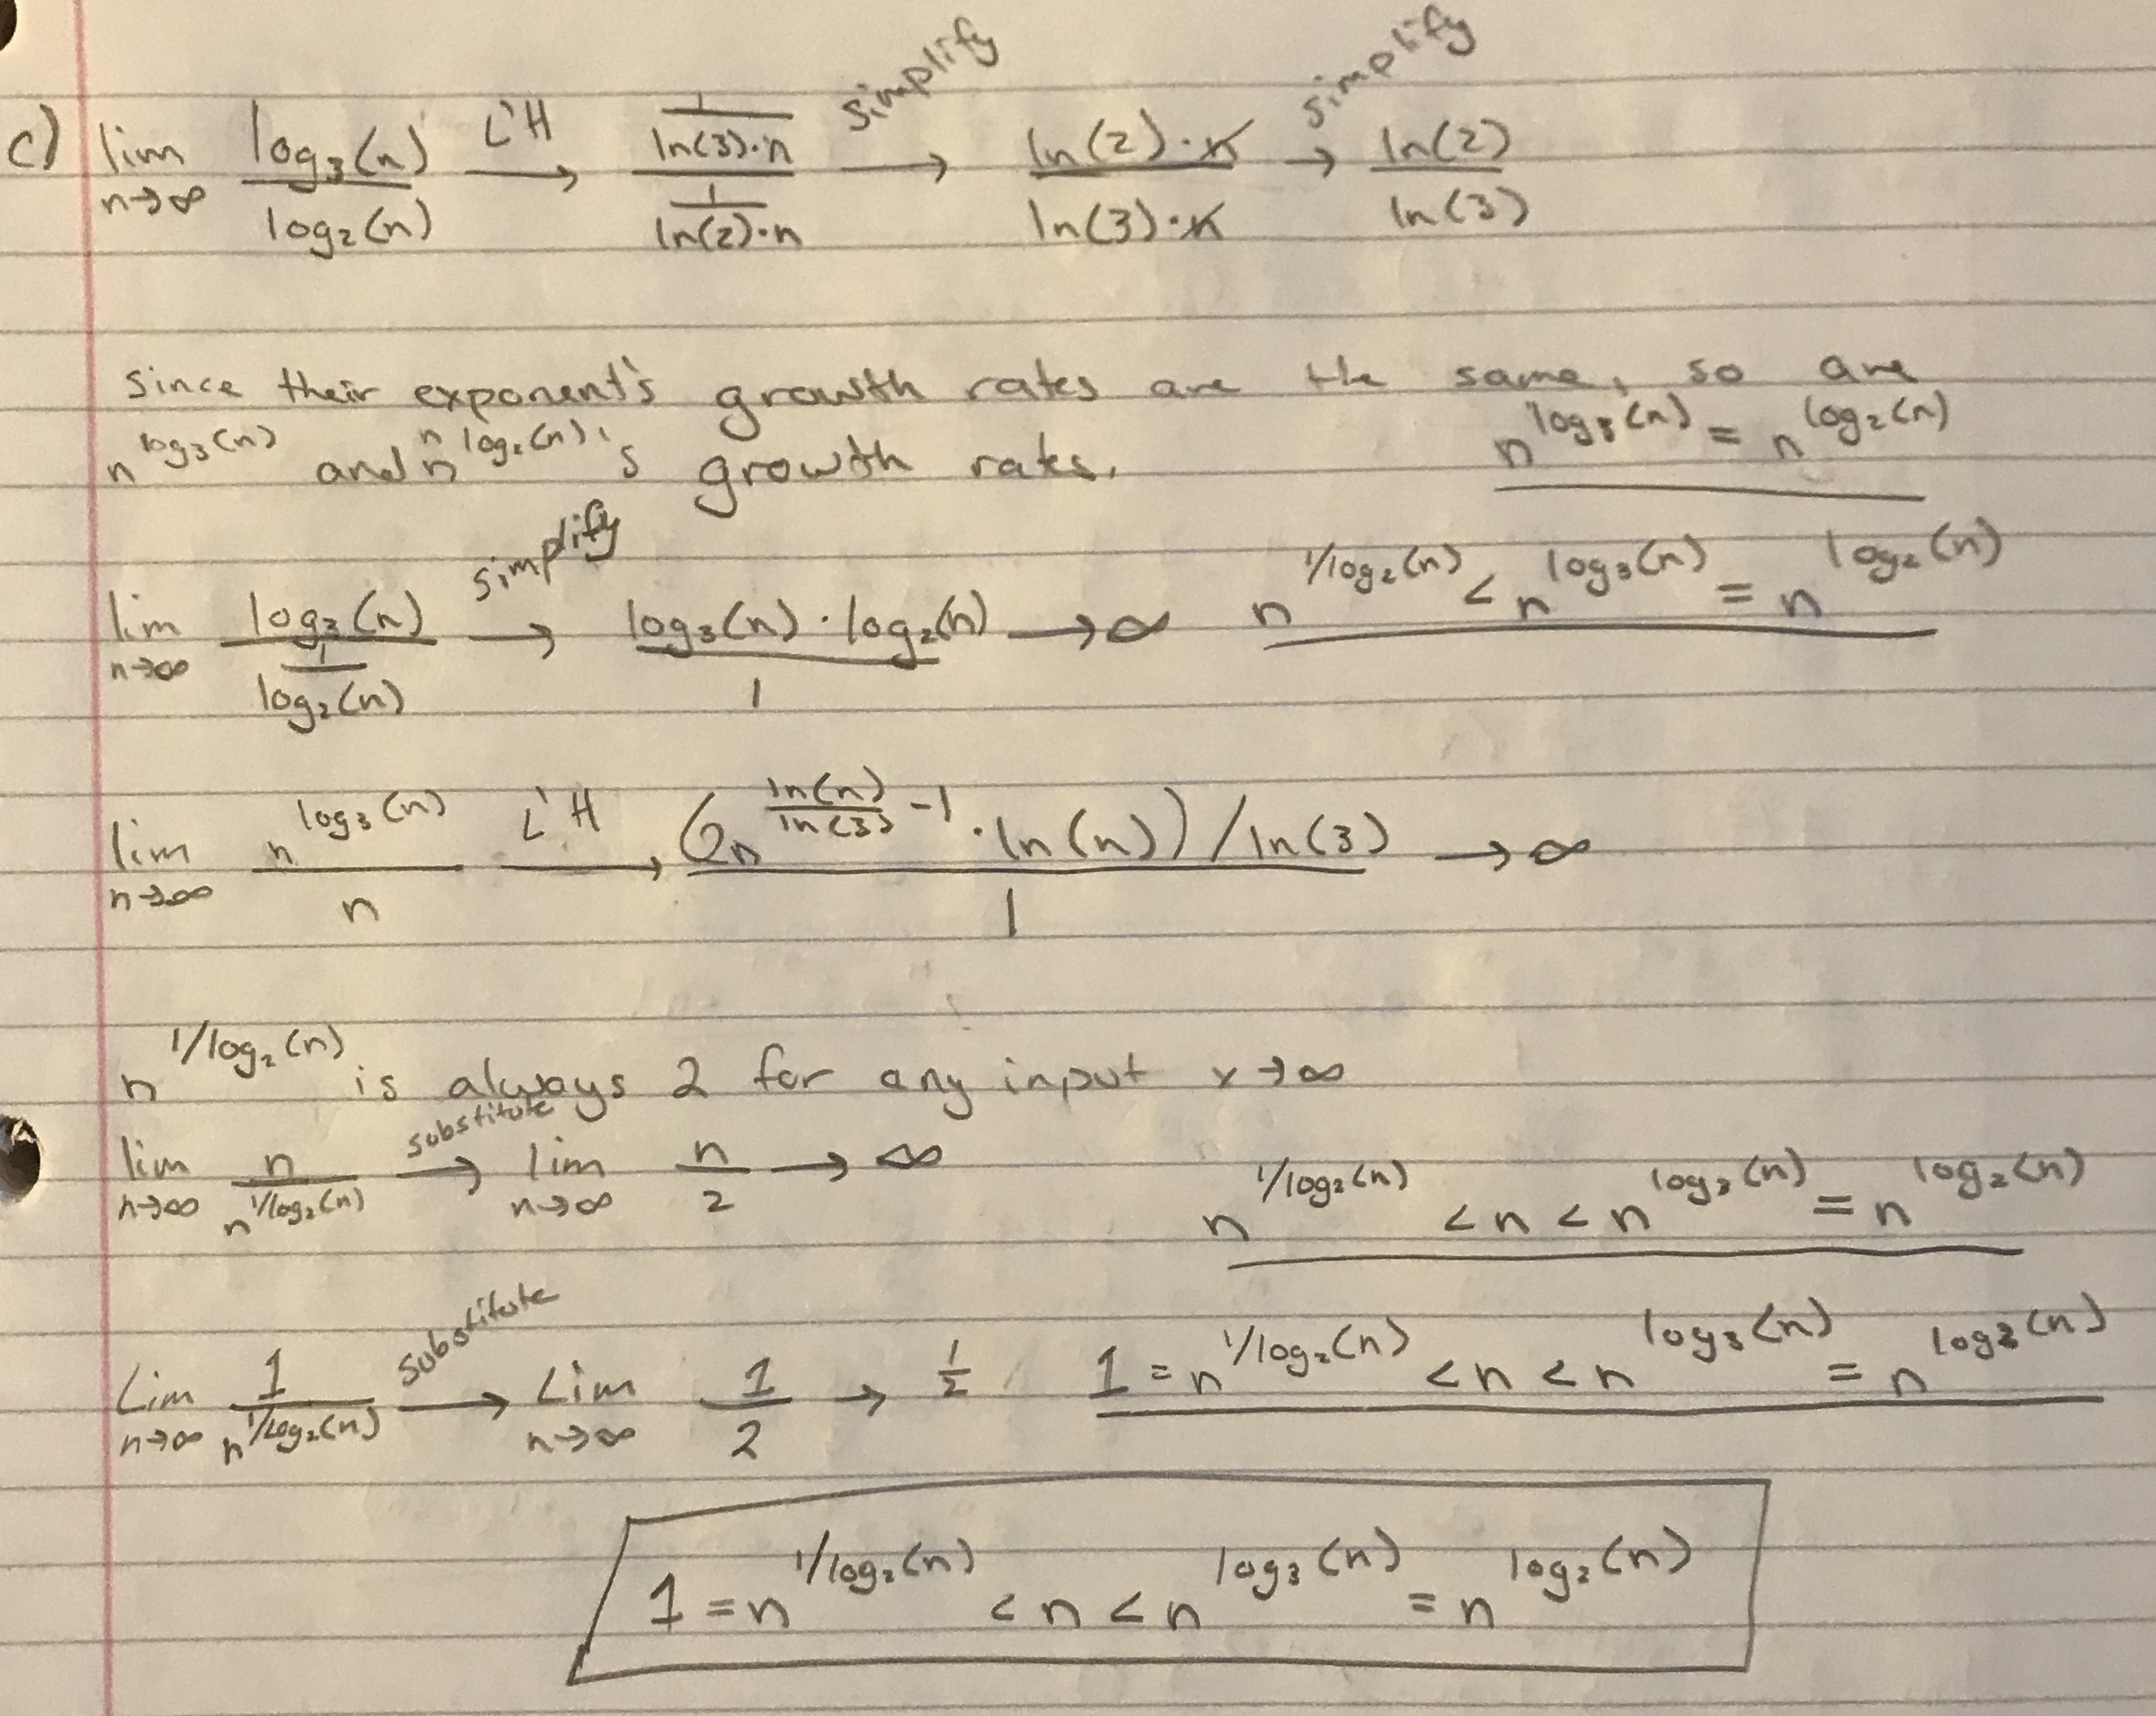 c) lim n→∞ log₃(n) / log₂(n) L'H → (1 / ln(3)·n) / (1 / ln(2)·n) simplify → ln(2)·n / ln(3)·n simplify → ln(2) / ln(3)
since their exponent's growth rates are the same, so are
n^log₃(n) and n^log₂(n)'s growth rates. n^log₃(n) = n^log₂(n)
lim n→∞ log₃(n) / (1 / log₂(n)) simplify → log₃(n)·log₂(n) / 1 → ∞ n^1/log₂(n) < n^log₃(n) = n^log₂(n)
lim n→∞ n^log₃(n) / n L'H → (n^(ln(n)/ln(3) -1)·ln(n))/ln(3) / 1 → ∞
n^1/log₂(n) is always 2 for any input x→∞
lim n→∞ n / n^1/log₂(n) substitute → lim n→∞ n / 2 → ∞ n^1/log₂(n) < n < n^log₃(n) = n^log₂(n)
Lim n→∞ 1 / n^1/log₂(n) substitute → Lim n→∞ 1 / 2 → 1/2 1 = n^1/log₂(n) < n < n^log₃(n) = n^log₂(n)
1 = n^1/log₂(n) < n < n^log₃(n) = n^log₂(n)